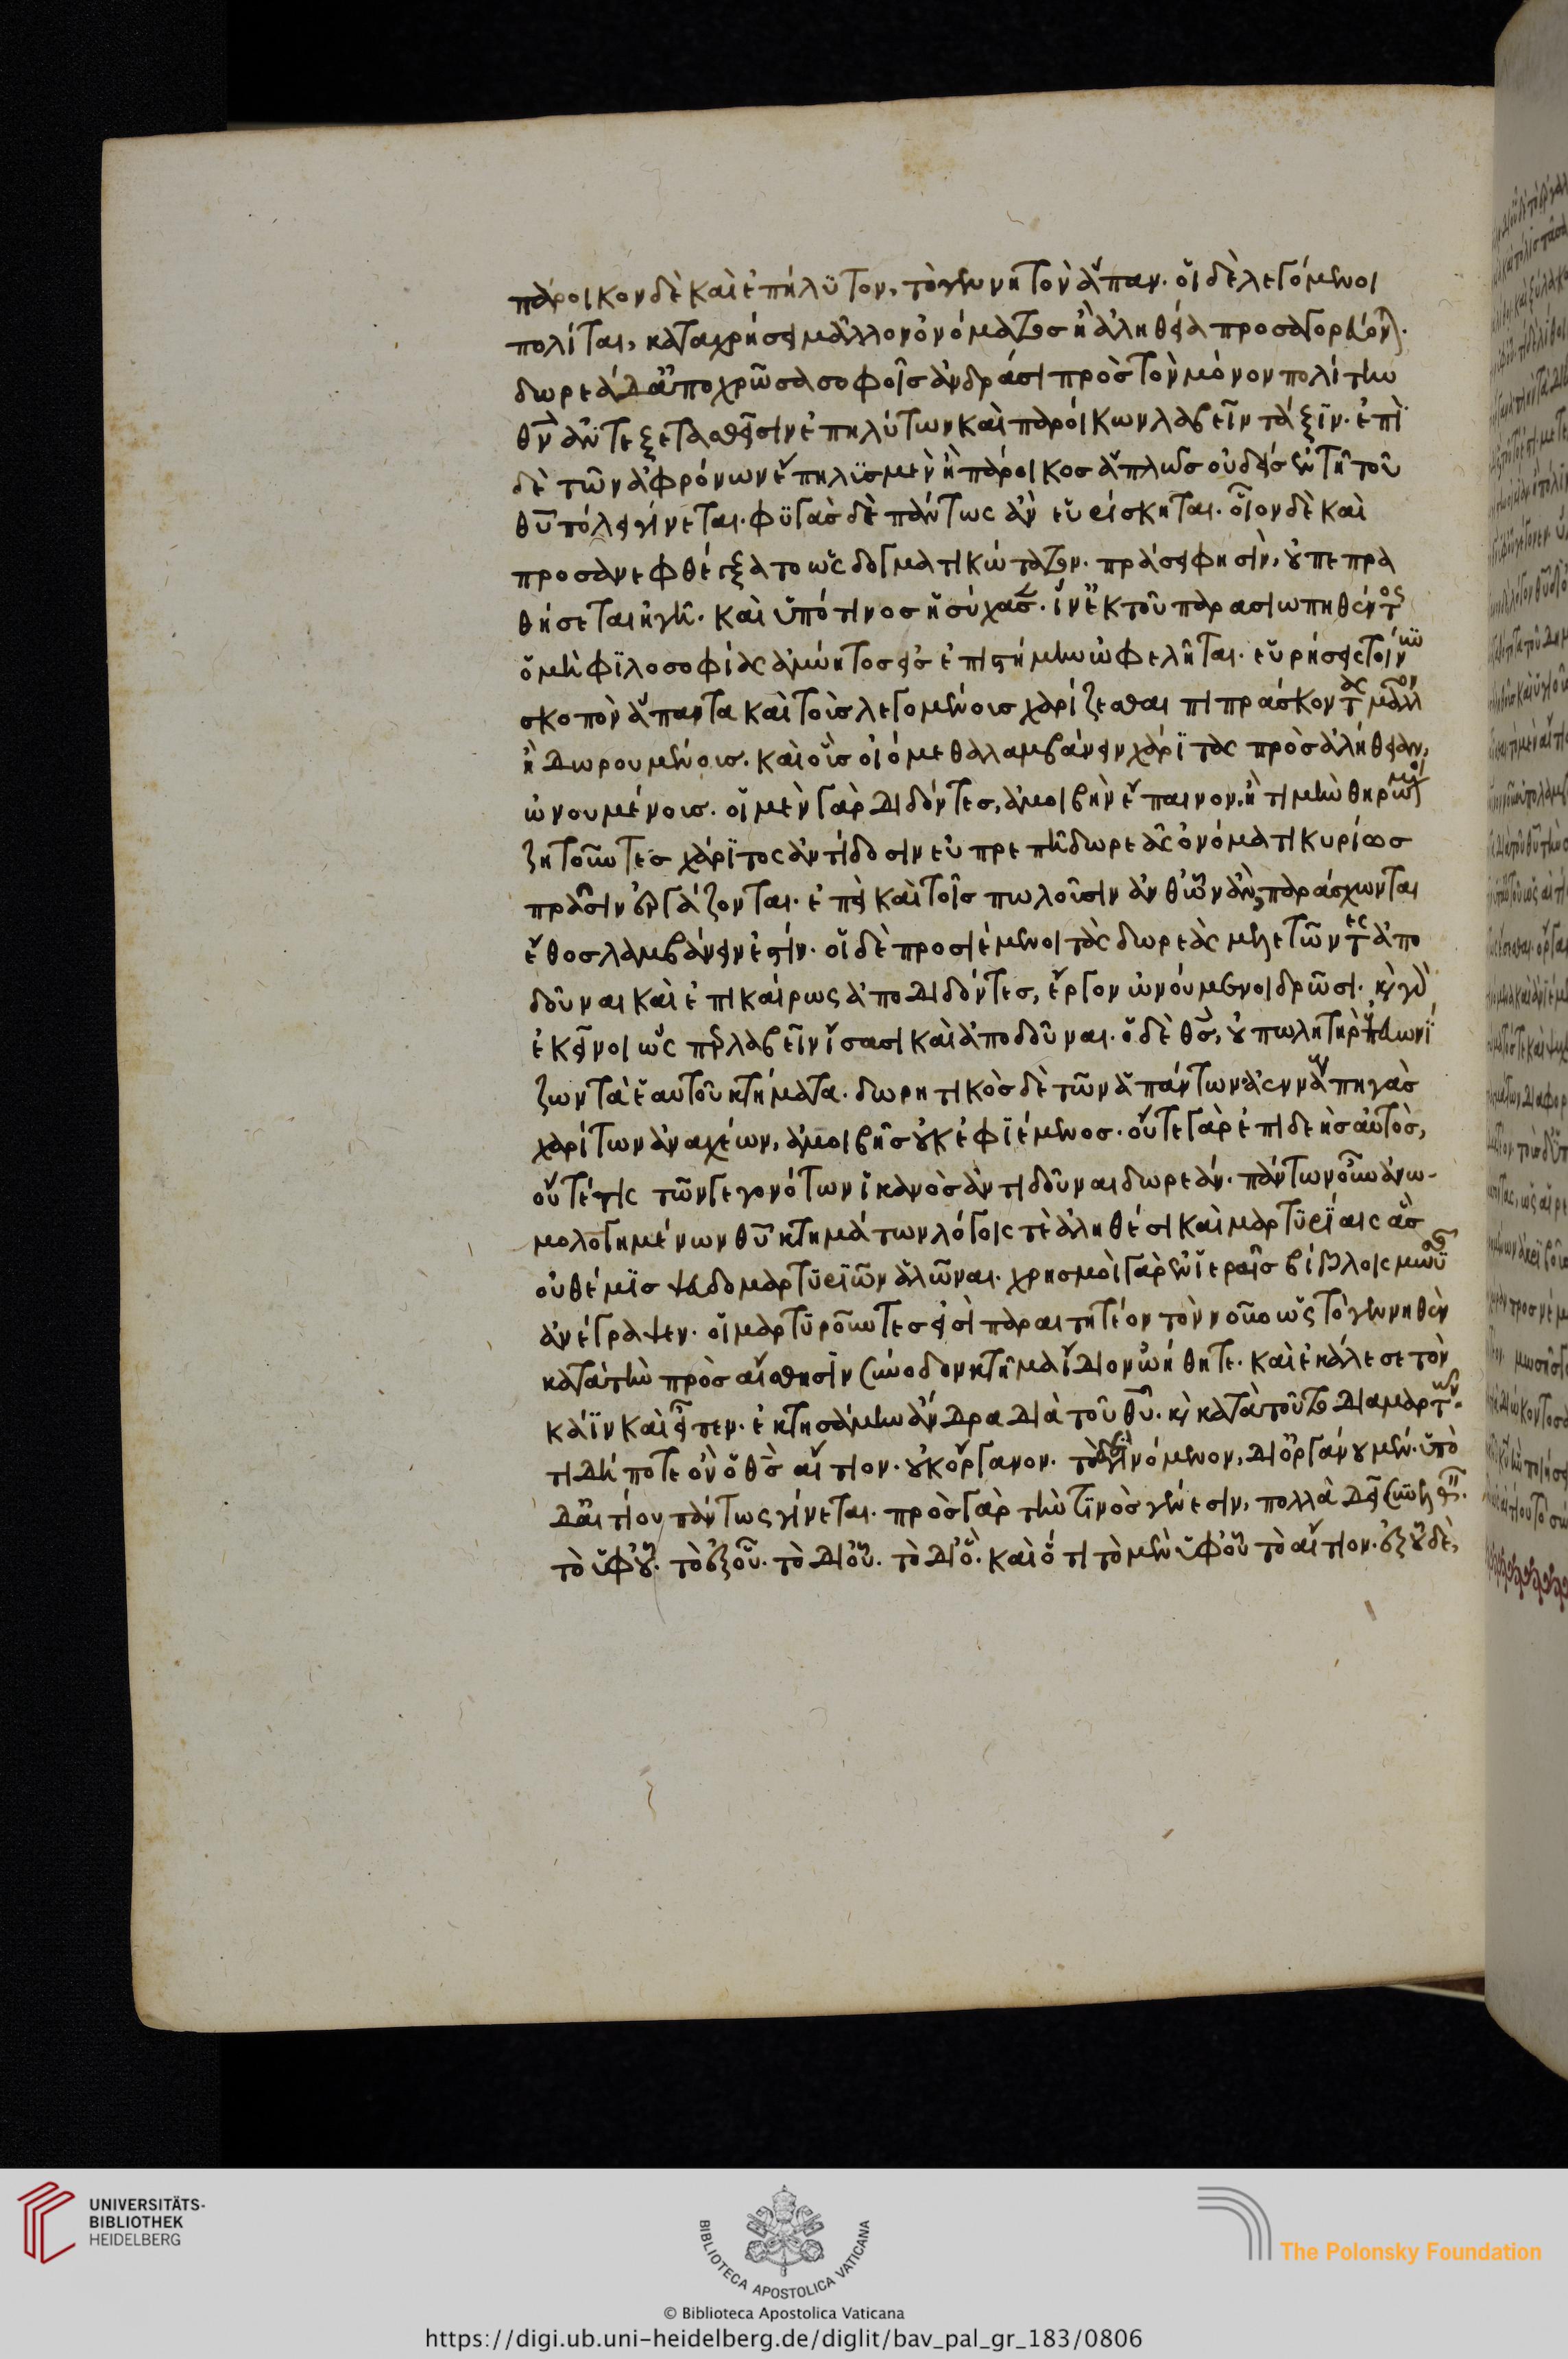 πάροικον δὲ καὶ ἐπήλυτον, τὸ γεννητὸν ἅπαν. οἱ δὲ λεγόμενοι
πολῖται, καταχρήσει μᾶλλον ὀνόματος ἢ ἀληθεία προσαγορεύονται.
δωρεὰ δ' ἀποχρῶσα σοφοῖς ἀνδράσι πρὸς τὸν μόνον πολίτην
θν ἀντεξετασθεῖσιν ἐπηλύτων καὶ παροίκων λαβεῖν τάξιν. ἐπὶ
δὲ τῶν ἀφρόνων ἔπηλυς μὲν ἢ πάροικος ἁπλῶς οὐδεὶς ἐν τῆ τοῦ
θυ πόλει γίνεται. φυγὰς δὲ πάντως ἀνευρίσκηται. οἷον δὲ καὶ
προσανεφθέγξατο ὡς δογματικώτατον. πράσει φησὶν, οὐ πεπρα
θήσεται ἡ γῆ. καὶ ὑπό τινος ἡσύχασε. ἵν' ἐκ τοῦ παρασιωπηθέντος
ὁ μὴ φιλοσοφίας ἀμύητος εἰς ἐπιστήμην ὠφελῆται. εὑρήσεις τοίνυν
σκοπὸν ἅπαντα καὶ τοὺς λεγομένους χαρίζεσθαι πιπράσκοντας μᾶλλον
ἢ δωρουμένους. καὶ οὓς οἰόμεθα λαμβάνειν χάριτας πρὸς ἀλήθειαν,
ὠνουμένους. οἱ μὲν γὰρ διδόντες, ἀμοιβὴν ἔπαινον, ἢ τιμὴν θηρώμενοι
ζητοῦντες χάριτος ἀντίδοσιν εὐπρεπῆ δωρεᾶς ὀνόματι κυρίως
πρᾶσιν ἐργάζονται. ἐπεὶ καὶ τοῖς πωλοῦσιν ἀνθ' ὧν ἂν παράσχωνται
ἔθος λαμβάνειν ἐστίν. οἱ δὲ προσιέμενοι τὰς δωρεὰς μελετῶντες ἀπο
δοῦναι καὶ ἐπικαίρως ἀποδιδόντες, ἔργον ὠνούμενοι δρῶσι. καὶ γὰρ
ἐκεῖνοι ὡς παραλαβεῖν ἴσασι καὶ ἀποδοῦναι. ὁ δὲ θς, οὐ πωλητὴρ ἐπευωνί
ζων τὰ ἑαυτοῦ κτήματα. δωρητικὸς δὲ τῶν ἁπάντων ἀεννάους πηγὰς
χαρίτων ἀναχέων, ἀμοιβῆς οὐκ ἐφιέμενος. οὔτε γὰρ ἐπιδεὴς αὐτὸς,
οὔτέ τις τῶν γεγονότων ἱκανὸς ἀντιδοῦναι δωρεάν. πάντων οὖν ἀνω-
μολογημένων θυ κτημάτων λόγοις τε ἀληθέσι καὶ μαρτυρίαις ἃς
οὐ θέμις ψευδομαρτυριῶν ἁλῶναι. χρησμοὶ γὰρ ἐν ἱεραῖς βίβλοις μωυσῆς
ἀνέγραψεν. οἱ μαρτυροῦντες εἰσὶ παραιτητέον τὸν νοῦν ὡς τὸ γεννηθὲν
κατὰ τὴν πρὸς αἴσθησιν σύνοδον κτῆμα ἴδιον ὠήθητε. καὶ ἐκάλεσε τὸν
κάϊν καὶ εἶπεν. ἐκτησάμην ἄνδρα διὰ τοῦ θυ. καὶ κατὰ τοῦτο διαμαρτών.
τι δή ποτε ὂν ὁ θς αἴτιον. οὐκ ὄργανον. τὸ δὲ γινόμενον, δι' ὀργάνου μὲν. ὑπὸ
δ' αἰτίου πάντως γίνεται. πρὸς γὰρ τὴν τινὸς γένεσιν, πολλὰ δεῖ συνελθεῖν.
τὸ ὑφ' οὗ. τὸ ἐξ οὗ. τὸ δι' οὗ. τὸ δι' ὅ. καὶ ὅτι τὸ μὲν ὑφ' οὗ τὸ αἴτιον. ἐξ οὗ δὲ,
UNIVERSITÄTS-
BIBLIOTHEK
HEIDELBERG
BIBLIOTECA APOSTOLICA VATICANA
The Polonsky Foundation
© Biblioteca Apostolica Vaticana
https://digi.ub.uni-heidelberg.de/diglit/bav_pal_gr_183/0806